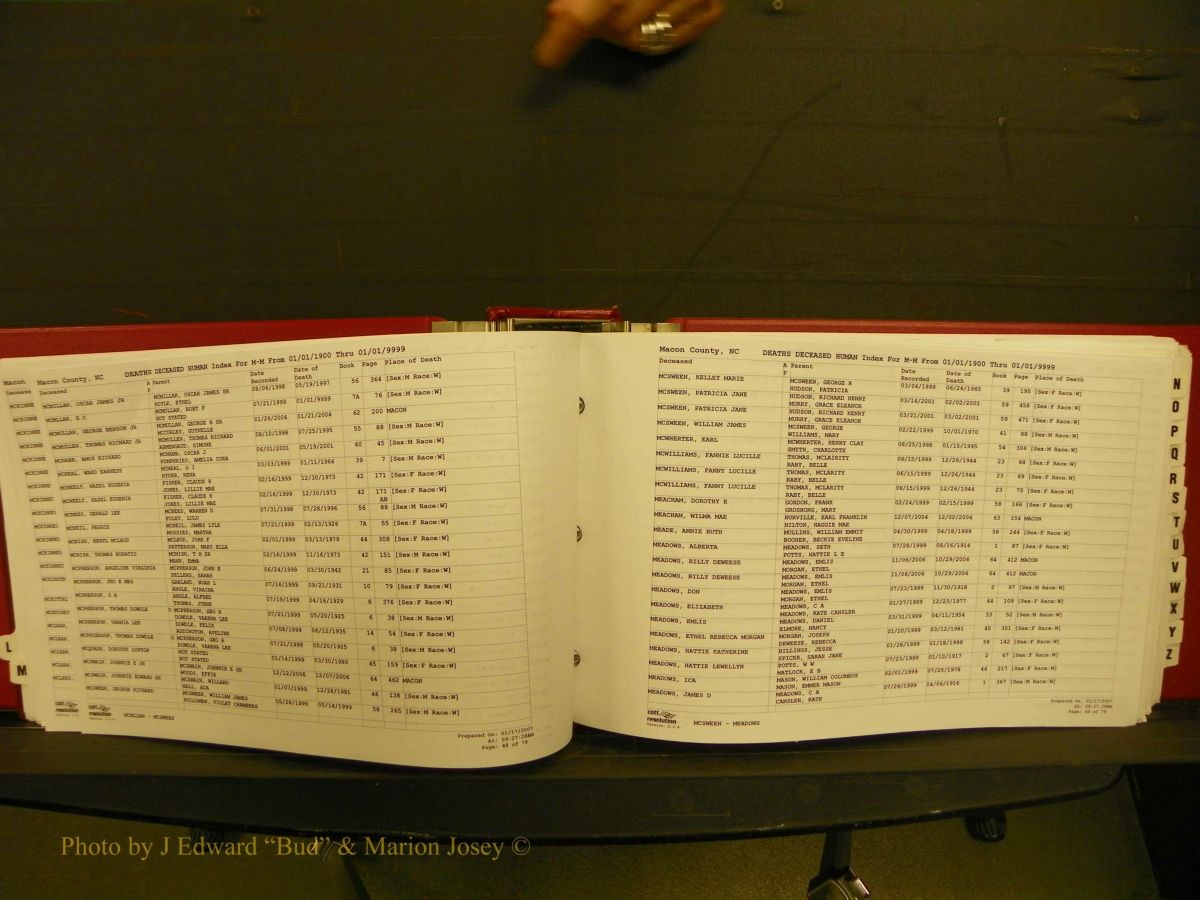 Macon County, NC DEATHS DECEASED HUMAN Index For M-M From 01/01/1900 Thru 01/01/9999
Deceased A Parent P Date Recorded Date of Death Book Page Place of Death
MCMILLAN, OSCAR JAMES JR MCMILLAN, OSCAR JAMES SR 08/06/1998 05/19/1997 56 364 [Sex:M Race:W]
HOYLE, ETHEL
07/21/1999 01/01/9999 7A 76 [Sex:M Race:W]
NOT STATED
MCMULLAN, GEORGE BENSON JR MCMULLAN, GEORGE B SR 01/26/2004 01/21/2004 62 200 MACON
MCMULLEN, THOMAS RICHARD JR MCMULLEN, THOMAS RICHARD 08/10/1998 07/25/1995 55 88 [Sex:M Race:W]
MCNABB, AMOS RICHARD MCNABB, OSCAR J 06/01/2001 05/19/2001 60 45 [Sex:M Race:W]
HUMPHRIES, AMELIA CORA
MCNEAL, WARD EARNEST 03/03/1999 01/11/1964 39 7 [Sex:M Race:W]
MCNEELY, HAZEL EUGENIA FISHER, CLAUDE S 02/16/1999 12/30/1973 42 171 [Sex:F Race:W]
JONES, LILLIE MAE
MCNEELY, HAZEL EUGENIA FISHER, CLAUDE S 02/16/1999 12/30/1973 42 171 AB [Sex:F Race:W]
JONES, LILLIE MAE
MCNEES, GERALD LEE MCNEES, WARREN D 07/31/1998 07/28/1996 56 88 [Sex:M Race:W]
FOLEY, LULU
MCNEIL, PEGGIE MCNEIL, JAMES LYLE 07/21/1999 02/13/1926 7A 55 [Sex:F Race:W]
MCNISH, BERYL MCLEOD MCLEOD, JOHN F 02/01/1999 03/13/1979 44 308 [Sex:F Race:W]
PATTERSON, MARY ELLA
MCNISH, THOMAS HORATIO MCNISH, T H SR 02/16/1999 11/16/1973 42 151 [Sex:M Race:W]
MANN, EMMA
MCPHERSON, ANGELINE VIRGINIA MCPHERSON, JOHN E 06/24/1999 03/30/1942 21 85 [Sex:F Race:W]
SELLERS, SARAH
MCPHERSON, JNO E MRS GARLAND, NOAH L 07/16/1999 09/21/1931 10 79 [Sex:F Race:W]
MCPHERSON, S A ANGLE, ALFRED 07/19/1999 04/16/1929 8 376 [Sex:F Race:W]
MCPHERSON, THOMAS DOWDLE D MCPHERSON, GEO R 07/21/1999 05/20/1925 6 38 [Sex:M Race:W]
DOWDLE, VARENA LEE
MCPHERSON, VARNIA LEE DOWDLE, FELIX 07/08/1999 06/12/1935 14 54 [Sex:F Race:W]
ADDINGTON, AVELINE
MCPHIERSON, THOMAS DOWDLE D MCPHERSON, GEO R 07/21/1999 05/20/1925 6 38 [Sex:M Race:W]
DOWDLE, VARENA LEE
MCQUADE, DOROTHY LUPTON NOT STATED 01/14/1999 03/30/1980 45 159 [Sex:F Race:W]
NOT STATED
MCSWAIN, JOHNNIE E JR MCSWAIN, JOHNNIE E SR 12/12/2006 12/07/2006 64 462 MACON
WOODS, EFFIE
MCSWAIN, JOHNNIE EDWARD SR MCSWAIN, WILLARD 01/07/1999 12/28/1981 46 138 [Sex:M Race:W]
HALL, ADA
MCSWEEN, GEORGE RICHARD MCSWEEN, WILLIAM JAMES 05/28/1999 05/14/1999 58 265 [Sex:M Race:W]
HOLLOMAN, VIOLET CHAMBERS
cott resolution
MCMILLAN - MCSWEEN
Prepared On: 01/17/2007
At: 09:27:28AM
Page: 48 of 79
L
M
Macon County, NC DEATHS DECEASED HUMAN Index For M-M From 01/01/1900 Thru 01/01/9999
Deceased A Parent P Date Recorded Date of Death Book Page Place of Death
MCSWEEN, KELLEY MARIE MCSWEEN, GEORGE R 03/04/1999 06/24/1965 39 195 [Sex:F Race:W]
HUDSON, PATRICIA
MCSWEEN, PATRICIA JANE HUDSON, RICHARD HENRY 03/14/2001 02/02/2001 59 458 [Sex:F Race:W]
MURRY, GRACE ELEANOR
MCSWEEN, PATRICIA JANE HUDSON, RICHARD HENRY 03/21/2001 03/02/2001 59 471 [Sex:F Race:W]
MURRY, GRACE ELEANOR
MCSWEEN, WILLIAM JAMES MCSWEEN, GEORGE 02/22/1999 10/01/1970 41 88 [Sex:M Race:W]
WILLIAMS, MARY
MCWHERTER, EARL MCWHERTER, HENRY CLAY 08/25/1998 01/15/1995 54 306 [Sex:M Race:W]
SMITH, CHARLOTTE
MCWILLIAMS, FANNIE LUCILLE THOMAS, MCLAIRITY 06/15/1999 12/26/1944 23 68 [Sex:F Race:W]
RABY, BELLE
MCWILLIAMS, FANNY LUCILLE THOMAS, MCLARITY 06/15/1999 12/26/1944 23 69 [Sex:F Race:W]
RABY, BELLE
MCWILLIAMS, FANNY LUCILLE THOMAS, MCLARITY 06/15/1999 12/26/1944 23 75 [Sex:F Race:W]
RABY, BELLE
MEACHAM, DOROTHY E GORDON, FRANK 02/24/1999 02/15/1999 58 166 [Sex:F Race:W]
GROSHONG, MARY
MEACHAM, WILMA MAE NORVILLE, EARL FRANKLIN 12/07/2004 12/02/2004 63 154 MACON
HILTON, HAGGIE MAE
MEADE, ANNIE RUTH MULLINS, WILLIAM EMMIT 04/30/1999 04/18/1999 58 244 [Sex:F Race:W]
BOOHER, BECKIE EVELYNE
MEADOWS, ALBERTA MEADOWS, SETH 07/28/1999 08/16/1914 1 87 [Sex:F Race:W]
POTTS, HATTIE L E
MEADOWS, BILLY DEWEESE MEADOWS, EMLIS 11/06/2006 10/29/2006 64 412 MACON
MORGAN, ETHEL
MEADOWS, BILLY DEWEESE MEADOWS, EMLIS 11/06/2006 10/29/2006 64 412 MACON
MORGAN, ETHEL
MEADOWS, DON MEADOWS, EMLIS 07/23/1999 11/30/1918 2 97 [Sex:M Race:W]
MORGAN, ETHEL
MEADOWS, ELIZABETH MEADOWS, C A 01/27/1999 12/23/1977 44 109 [Sex:F Race:W]
MEADOWS, KATE CANSLER
MEADOWS, EMLIS MEADOWS, DANIEL 03/31/1999 04/11/1954 33 52 [Sex:M Race:W]
ELMORE, NANCY
MEADOWS, ETHEL REBECCA MORGAN MORGAN, JOSEPH 01/20/1999 03/12/1981 45 351 [Sex:F Race:W]
DEWEESE, REBECCA
MEADOWS, HATTIE KATHERINE BILLINGS, JESSE 01/28/1999 01/18/1999 58 142 [Sex:F Race:W]
SPICER, SARAH JANE
MEADOWS, HATTIE LEWELLYN POTTS, W W 07/23/1999 01/10/1917 2 67 [Sex:F Race:W]
MATLOCK, E B
MEADOWS, ICA MASON, WILLIAM COLUMBUS 02/01/1999 07/25/1978 44 217 [Sex:F Race:W]
MASON, EMMER MASON
MEADOWS, JAMES D MEADOWS, C A 07/29/1999 04/06/1916 1 367 [Sex:M Race:W]
CANSLER, KATE
cott resolution
MCSWEEN - MEADOWS
Prepared On: 01/17/2007
At: 09:27:28AM
Page: 49 of 79
N
O
P
Q
R
S
T
U
V
W
X
Y
Z
Photo by J Edward “Bud” & Marion Josey ©